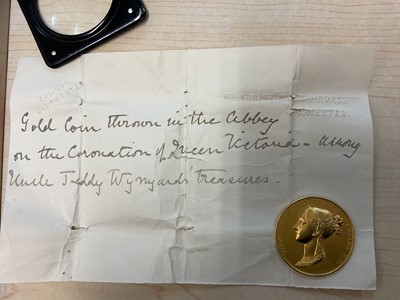 Gold Coin thrown in the Abbey
on the Coronation of Queen Victoria - among
Uncle Teddy Wynyard's treasures.